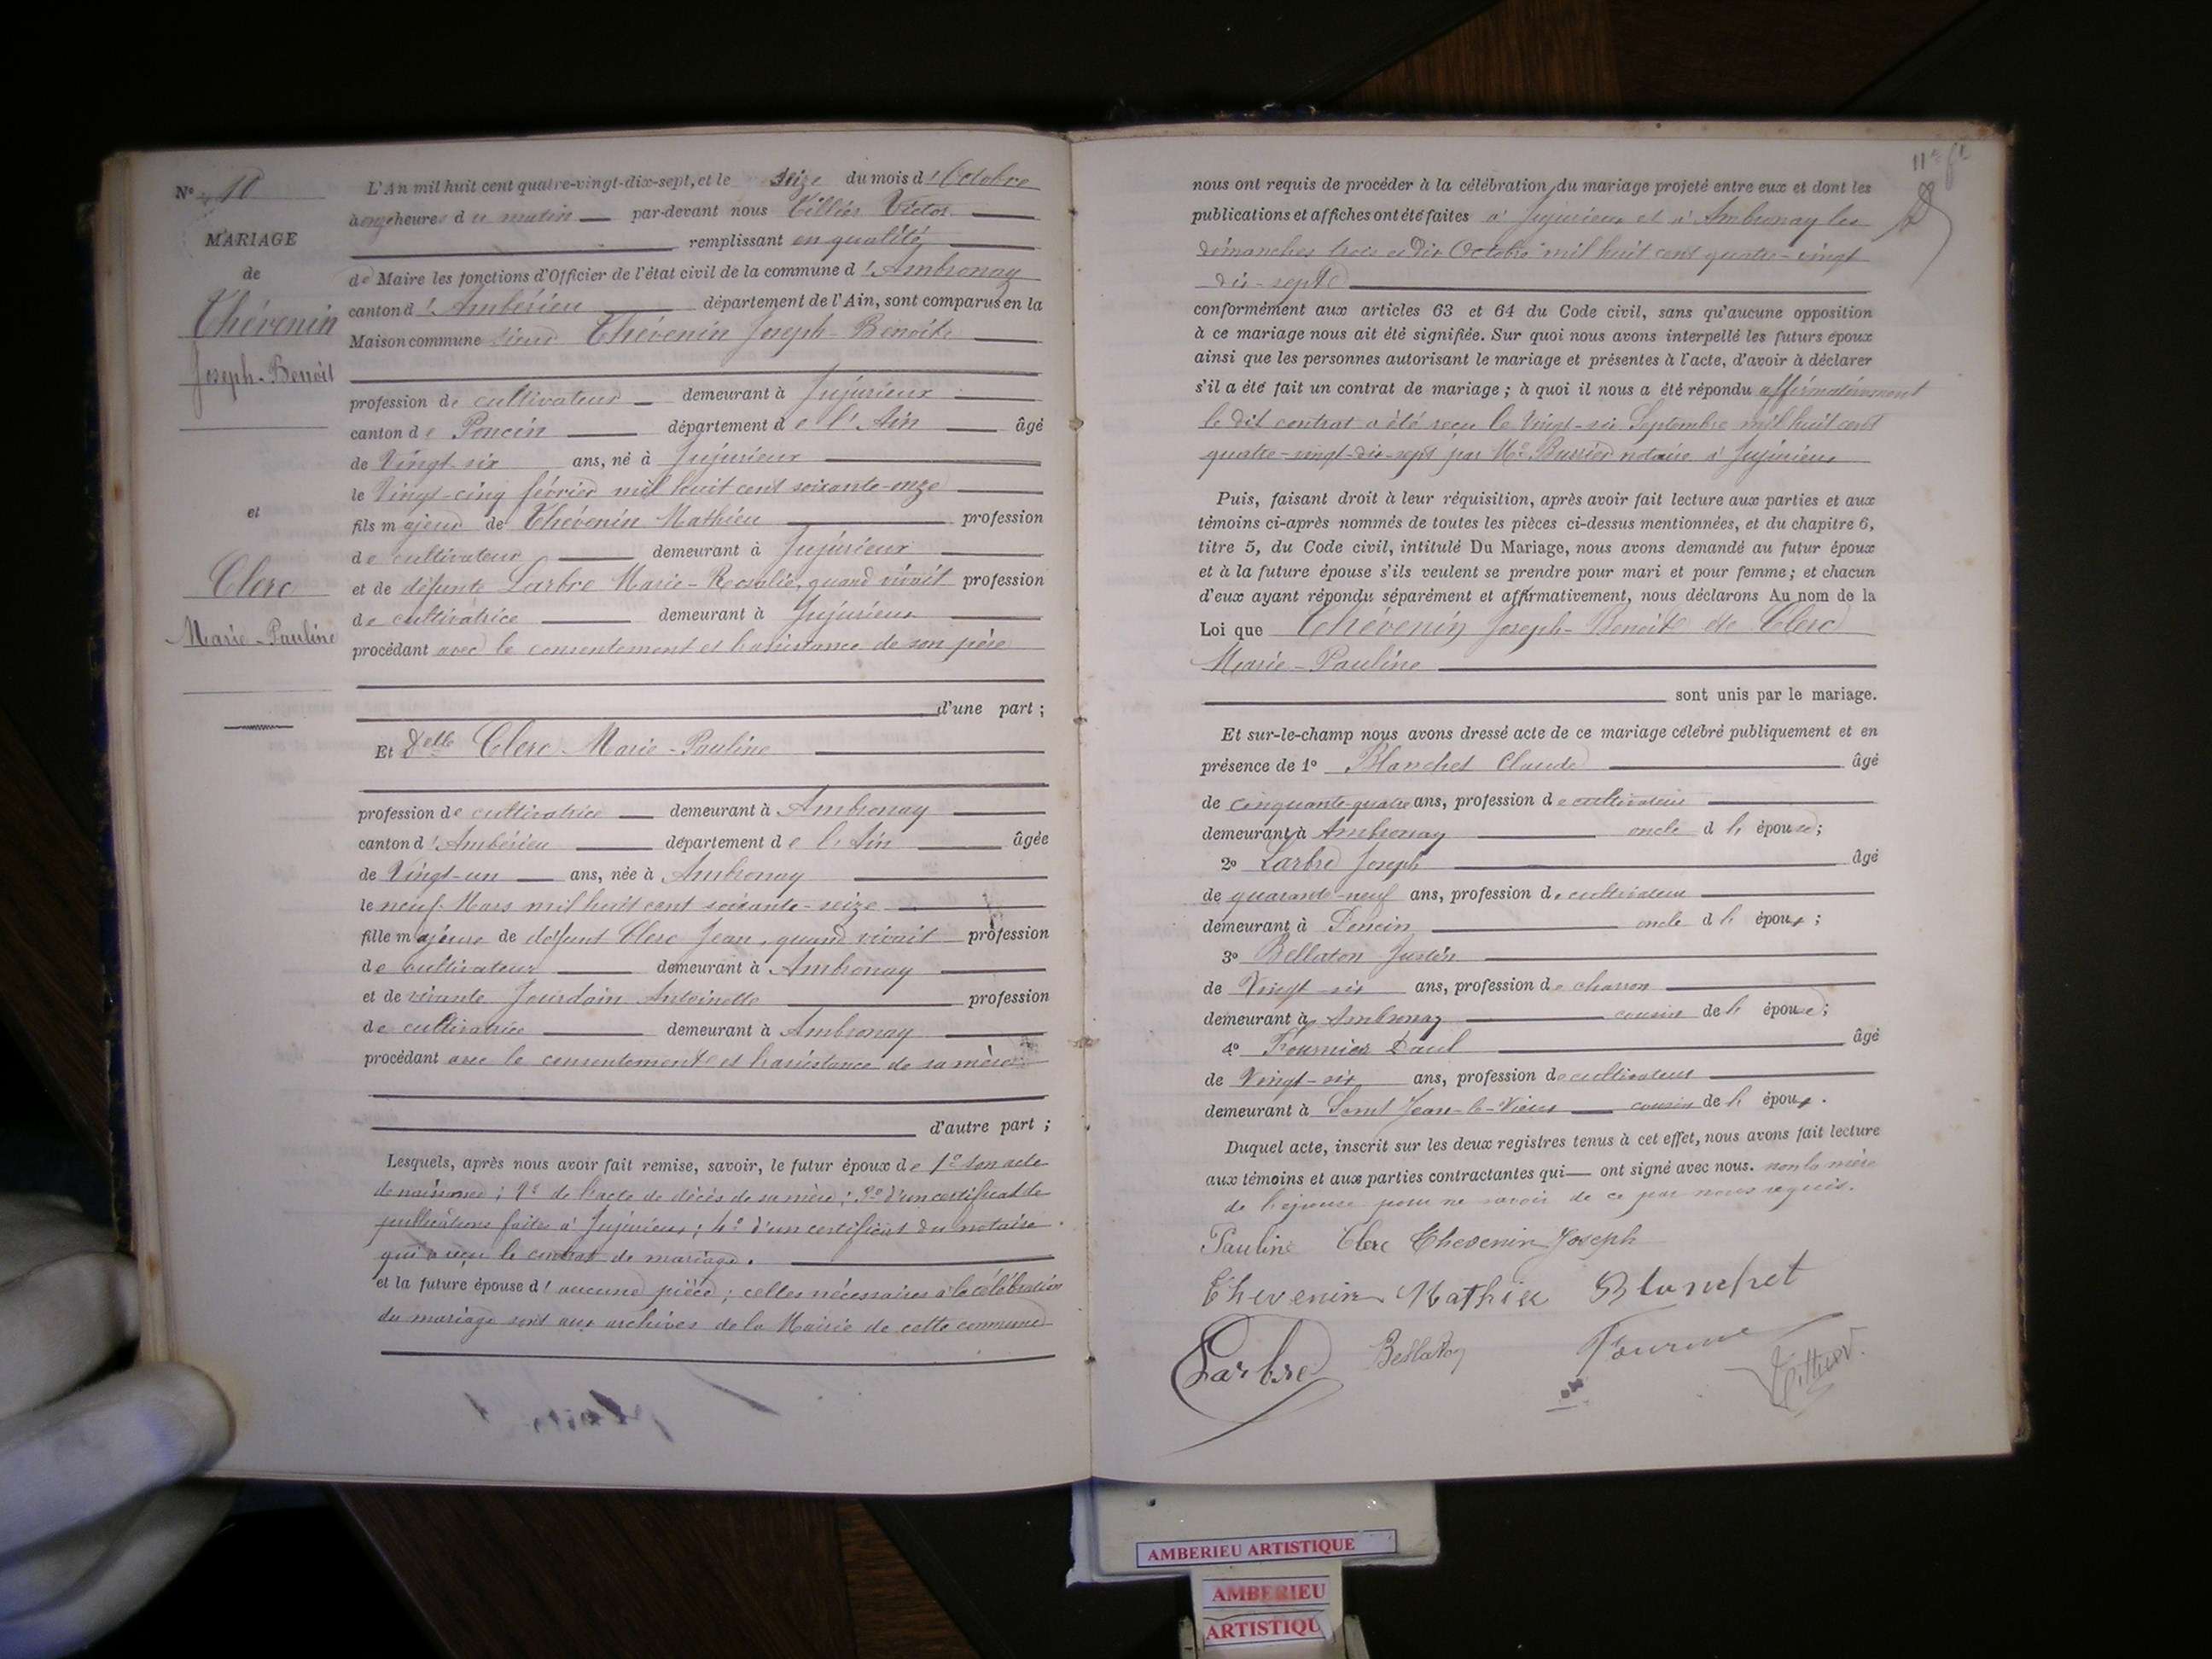 N° 10
MARIAGE
de
Thévenin
Joseph-Benoît
et
Clerc
Marie-Pauline
L'An mil huit cent quatre-vingt-dix-sept, et le seize du mois d'Octobre
à onze heures du matin par-devant nous Victor
remplissant en qualité
de Maire les fonctions d'Officier de l'état civil de la commune d'Ambronay
canton d'Ambérieu département de l'Ain, sont comparus en la
Maison commune sieur Thévenin Joseph-Benoît
profession de cultivateur demeurant à Jujurieux
canton de Poncin département de l'Ain âgé
de Vingt-six ans, né à Jujurieux
le Vingt-cinq février mil huit cent soixante-onze
fils majeur de Thévenin Mathieu profession
de cultivateur demeurant à Jujurieux
et de défunte Larbre Marie-Rosalie, quand vivait profession
de cultivatrice demeurant à Jujurieux
procédant avec le consentement et l'assistance de son père
d'une part ;
Et Delle Clerc Marie-Pauline
profession de cultivatrice demeurant à Ambronay
canton d'Ambérieu département de l'Ain âgée
de Vingt-un ans, née à Ambronay
le neuf Mars mil huit cent soixante-seize
fille majeure de défunt Clerc Jean, quand vivait profession
de cultivateur demeurant à Ambronay
et de vivante Jourdain Antoinette profession
de cultivatrice demeurant à Ambronay
procédant avec le consentement et l'assistance de sa mère
d'autre part ;
Lesquels, après nous avoir fait remise, savoir, le futur époux de 1° son acte
de naissance ; 2° de l'acte de décès de sa mère ; 3° d'un certificat de
publications faites à Jujurieux ; 4° d'un certificat du notaire
qui a reçu le contrat de mariage.
et la future épouse d'aucune pièce ; celles nécessaires à la célébration
du mariage sont aux archives de la Mairie de cette commune
nous ont requis de procéder à la célébration du mariage projeté entre eux et dont les
publications et affiches ont été faites à Jujurieux et à Ambronay les
dimanches trois et dix Octobre mil huit cent quatre-vingt
dix-sept
conformément aux articles 63 et 64 du Code civil, sans qu'aucune opposition
à ce mariage nous ait été signifiée. Sur quoi nous avons interpellé les futurs époux
ainsi que les personnes autorisant le mariage et présentes à l'acte, d'avoir à déclarer
s'il a été fait un contrat de mariage ; à quoi il nous a été répondu affirmativement
le dit contrat a été reçu le Vingt-six Septembre mil huit cent
quatre-vingt-dix-sept par Me notaire à Jujurieux
Puis, faisant droit à leur réquisition, après avoir fait lecture aux parties et aux
témoins ci-après nommés de toutes les pièces ci-dessus mentionnées, et du chapitre 6,
titre 5, du Code civil, intitulé Du Mariage, nous avons demandé au futur époux
et à la future épouse s'ils veulent se prendre pour mari et pour femme ; et chacun
d'eux ayant répondu séparément et affirmativement, nous déclarons Au nom de la
Loi que Thévenin Joseph-Benoît et Clerc
Marie-Pauline
sont unis par le mariage.
Et sur-le-champ nous avons dressé acte de ce mariage célébré publiquement et en
présence de 1° Blanchet Claude âgé
de cinquante-quatre ans, profession de cultivateur
demeurant à Ambronay oncle d l'épouse ;
2° Larbre Joseph âgé
de quarante-neuf ans, profession de cultivateur
demeurant à Poncin oncle d l'époux ;
3° Bellaton Justin
de Vingt-six ans, profession de charron
demeurant à Ambronay cousin de l'épouse ;
4° Fournier Paul âgé
de Vingt-six ans, profession de cultivateur
demeurant à Saint Jean-le-Vieux cousin de l'époux.
Duquel acte, inscrit sur les deux registres tenus à cet effet, nous avons fait lecture
aux témoins et aux parties contractantes qui ont signé avec nous. non la mère
de l'épouse pour ne savoir de ce par nous requis.
Pauline Clerc Thevenin Joseph
Thevenin Mathieu Blanchet
Larbre Bellaton
AMBERIEU ARTISTIQUE
AMBERIEU
ARTISTIQU